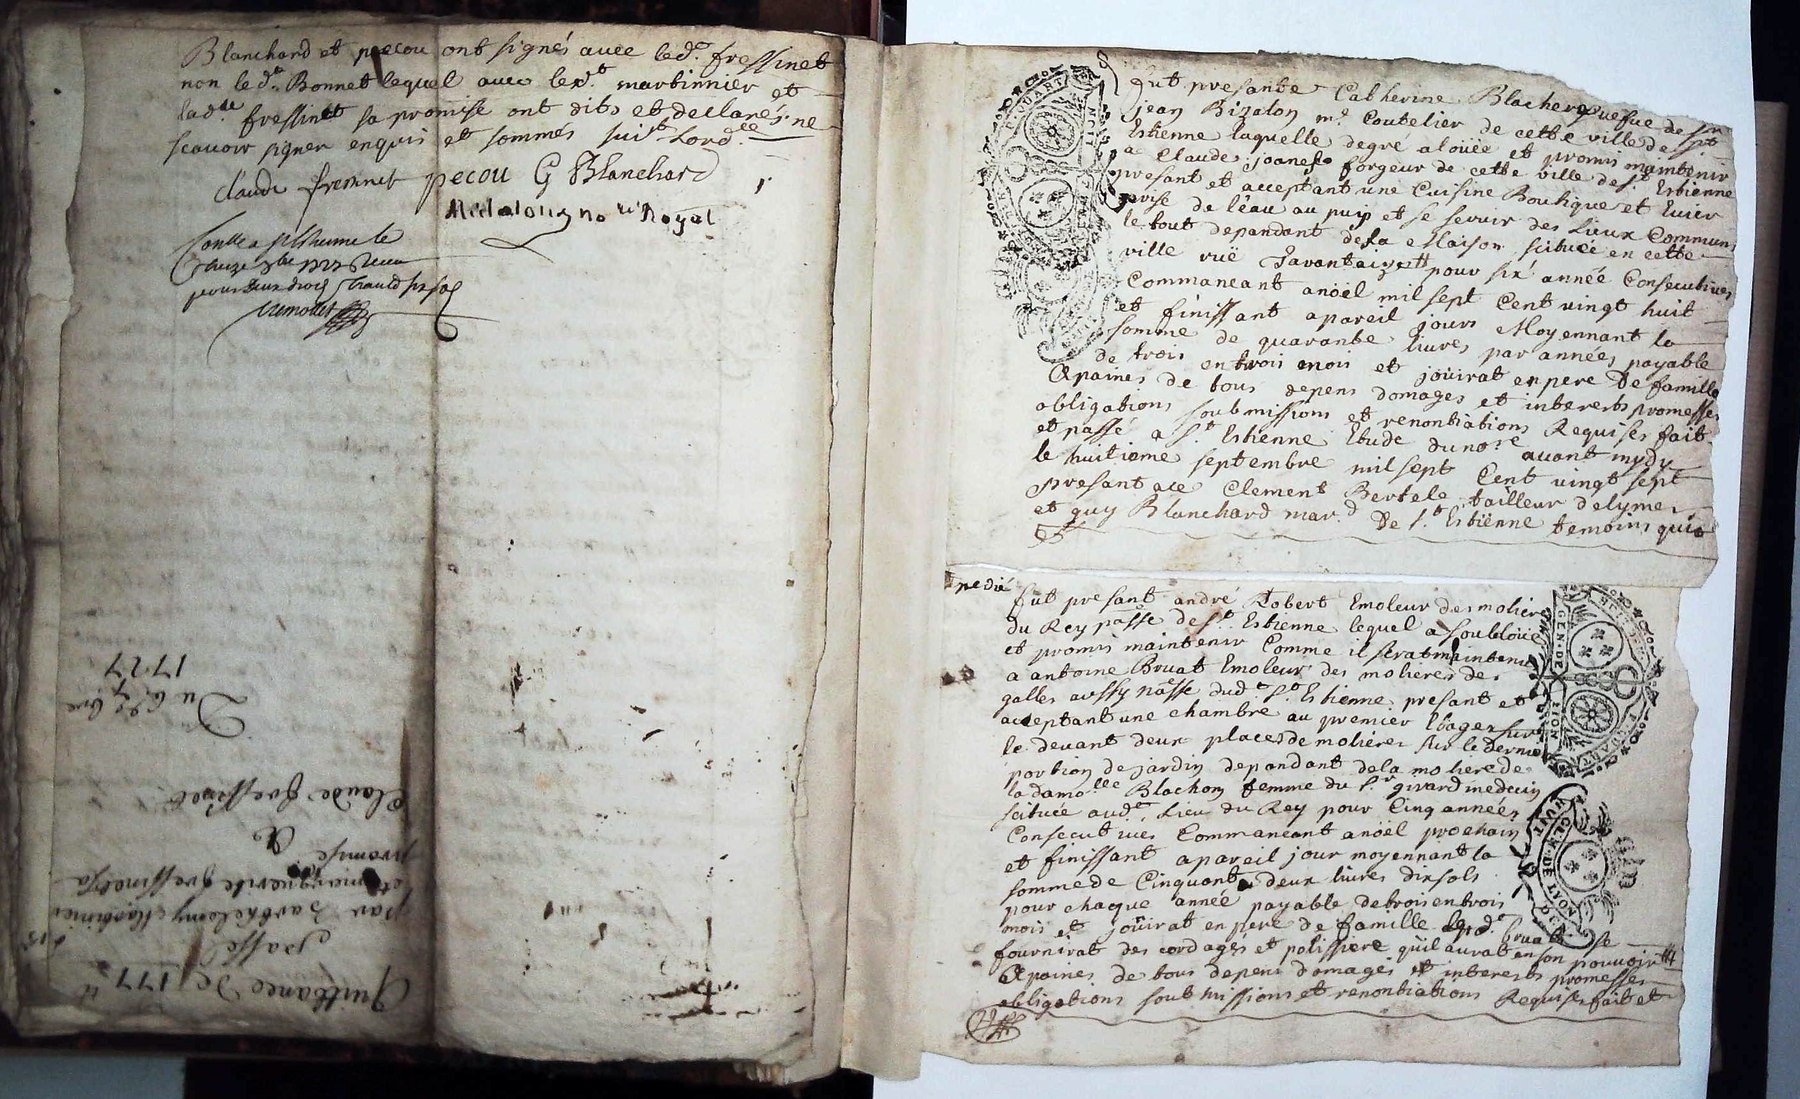 Blanchard et pecou ont signés avec led.t fressinet
non led.t Bonnet lequel avec led.t martinnier et
lad.te fressinett sa promise ont dits et declarés ne
scavoir signer enquis et sommés suiv.t Lord.ce
Claude fressinet pecou G Blanchard
no.re Royal
Quittance de 177 lt
passé
par Barthelemy Martinier
et marguerite fressinet sa
promise
A
Claude fressinet
Du 6e 7bre
1727
fut presante Catherine Blachere vefve de sr
jean Bizalon me. Coutelier de cette ville de st
Estienne laquelle degre a loüée et promis maintenir
a Claude joanes forgeur de cette ville de st. Estienne
presant et acceptant une Cuisine Boutique et Evier
prise de l'éau au puis et se servir des Lieux Communs
le tout depandant de la Maison scituée en cette
ville rüe pour six année Consecutives
Commancant anöel mil sept Cent vingt huit
et finissant apareil jours Moyennant la
somme de quarante livres par années payable
de trois entrois mois et joüirat enpere De famille
Apaines de tous depens domages et interests promesses
obligations soubmissions et renontiations Requises fait
et passé a St Estienne Etude du nore avant mydy
le huitieme septembre mil sept Cent vingt sept
presant ace Clement Bertele tailleur delymes
et guy Blanchard mar.d De St. Estienne temoins qui
fut presant andré Robert Emoleur des moliere
du Rey passe de St. Estienne lequel a soubloüé
et promis maintenir Comme il serat maintenu
a antoine Bruat Emoleur des molieres des
galles aussy dud.t St. Estienne presant et
acceptant une chambre au premier Etage sur
le devant deux places de molieres sur le dernie
portion de jardin depandant dela moliere de
la damo.lle Blachon femme du Sr. girard medecin
scituée aud.t Lieu du Rey pour Cinq années
Consecutives Commancant anöel prochain
et finissant apareil jour moyennant la
somme de Cinquante deux livres dix sols
pour chaque année payable de trois en trois
mois et joüirat en pere de famille led.t Bruat se
fournirat des cordages et polissiere quil aurat en son pouvoir
Apaines de tous depens domages et interests promesses
obligations soubmissions et renontiations Requises fait et